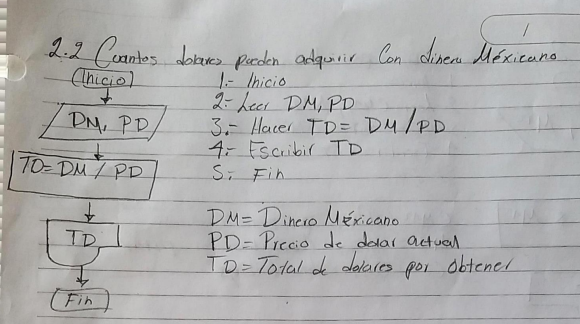 1
2.2 Cuantos dolares pueden adquirir Con dinero Méxicano
Inicio
DM, PD
TD= DM / PD
TD
Fin
1.- Inicio
2- Leer DM, PD
3.- Hacer TD= DM/PD
4.- Escribir TD
5.- Fin
DM= Dinero Méxicano
PD= Precio de dolar actual
TD= Total de dolares por Obtener